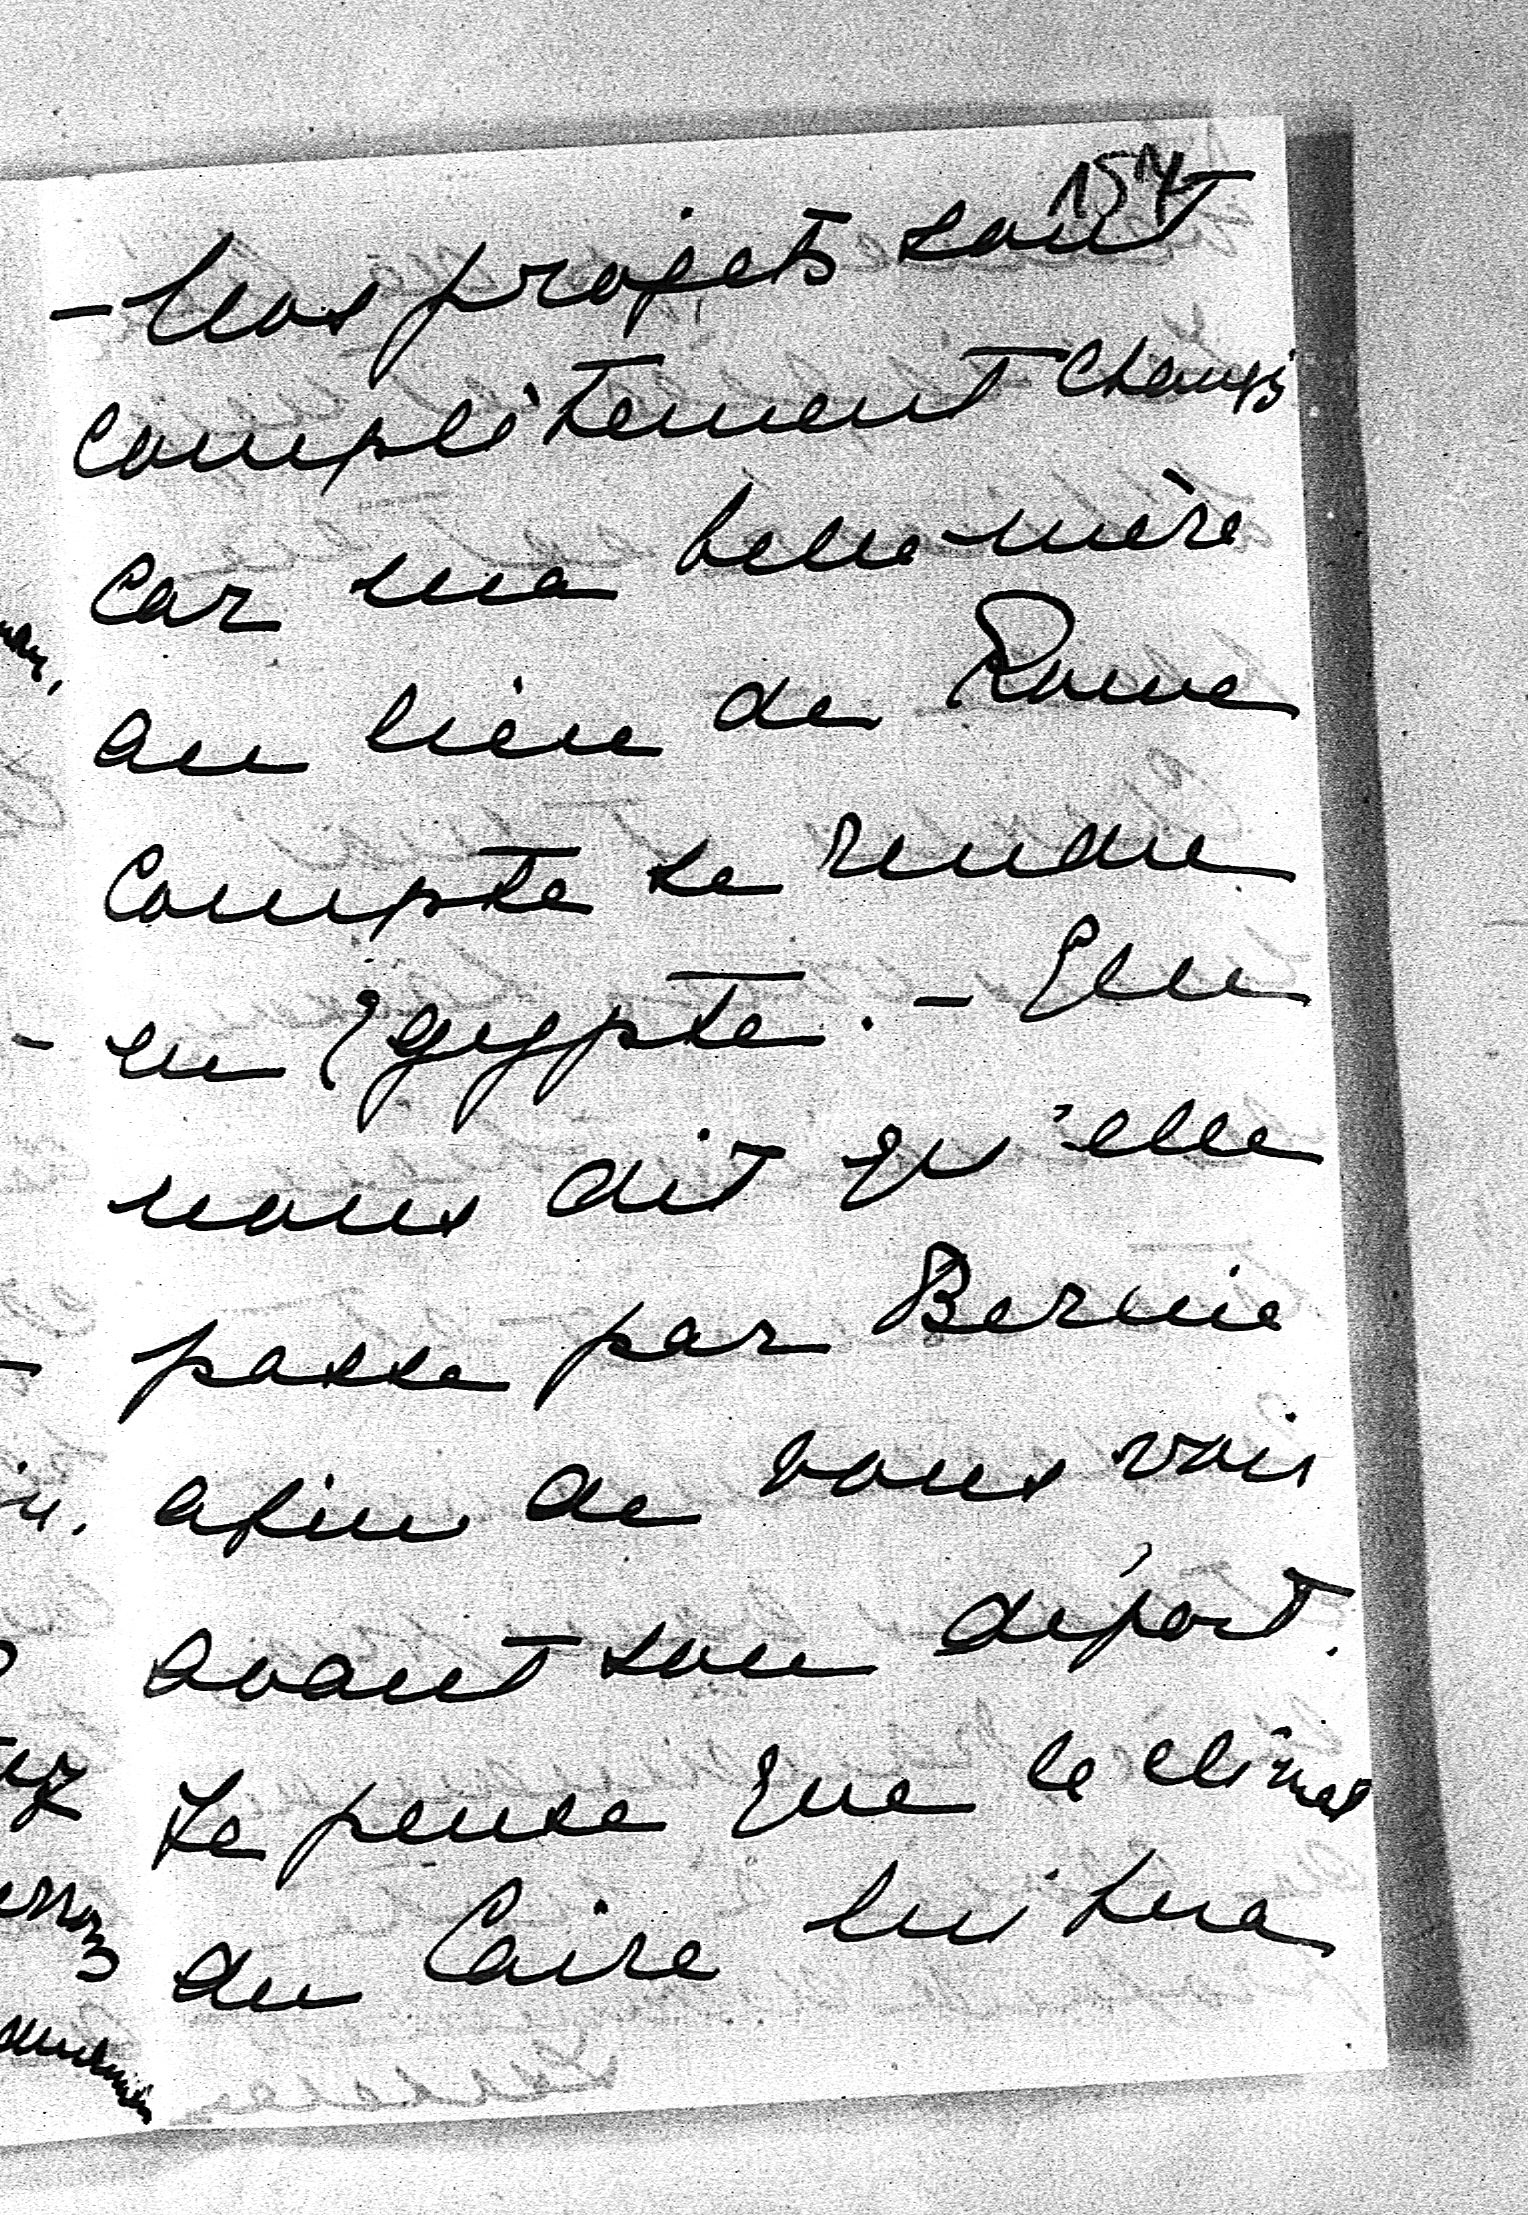 157
- Nos projets sont
complètement changés
car ma belle-mère
au lieu de Rome
compte se rendre
en Egypte. - Elle
nous dit qu'elle
passe par Berne
afin de vous voir
avant son départ.
Je pense que le climat
du Caire lui sera